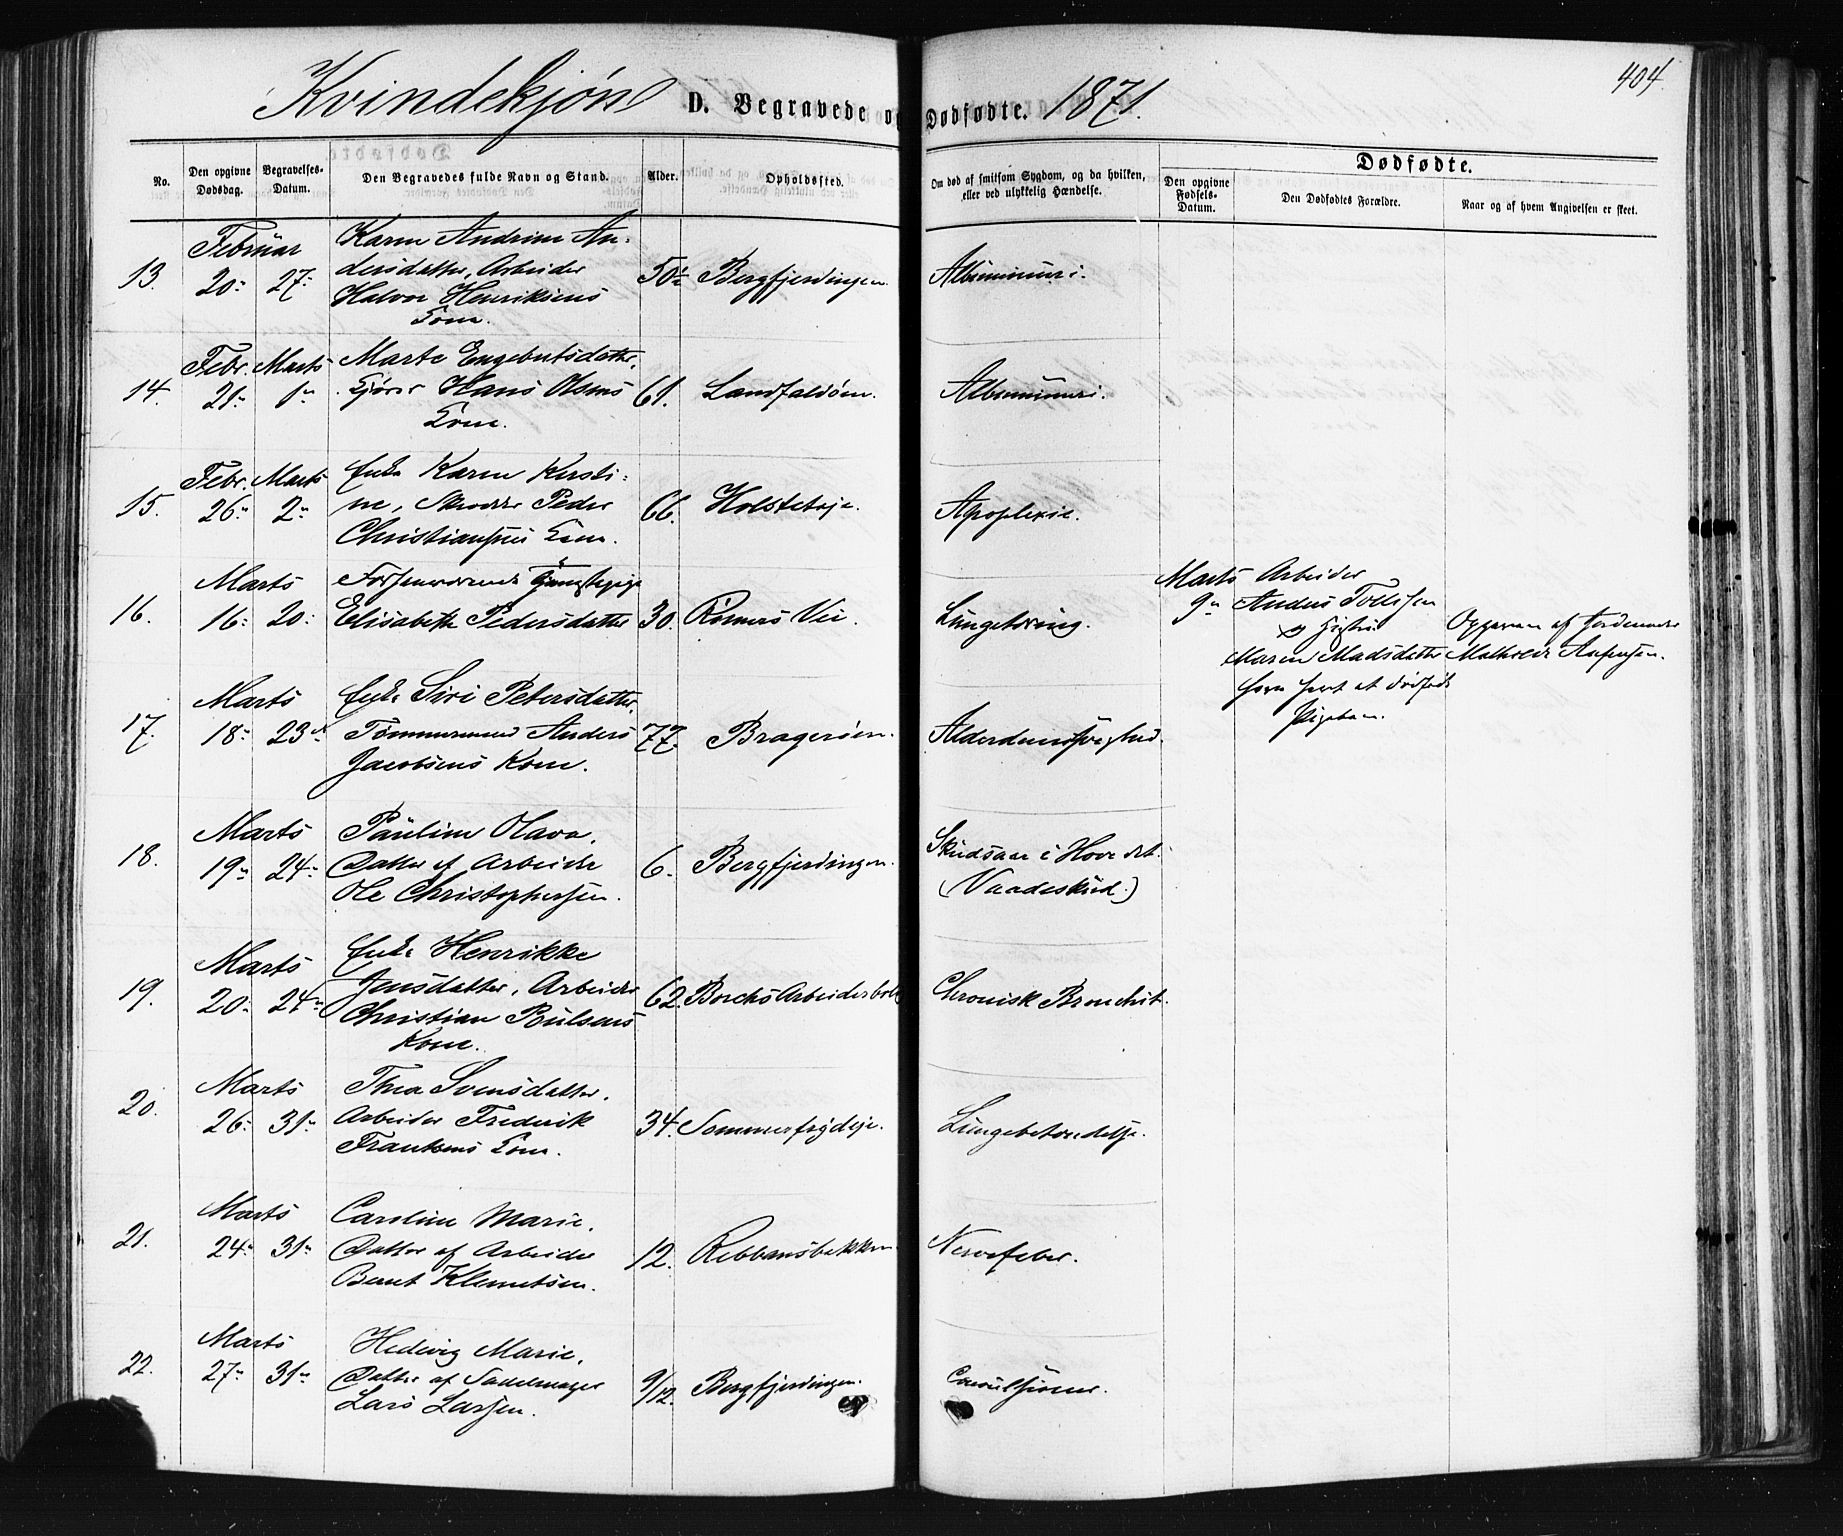 404.
Kvindekjøn D. Begravede og Dødfødte. 1871.
No.
Den opgivne Dødsdag.
Begravelses-Datum.
Den Begravedes fulde Navn og Stand.
Alder.
Opholdssted.
Om død af smitsom Sygdom, og da hvilken,
eller ved ulykkelig Hændelse.
Dødfødte.
Den opgivne Fødsels-Datum.
Den Dødfødtes Forældre.
Naar og af hvem Angivelsen er skeet.
Februar
13. 20. 27.
Karen Andrine An-
dersdatter, Arbeider
Halvor Henriksens
Kone.
50½ Bergfjerdingen. Albuminuri.
Febr. Marts
14. 21. 1.
Marte Engebretsdatter,
Hans Olsens
Kone.
61. Landfaldøen. Albuminuri.
Febr. Marts
15. 26. 2.
Enke Karen Kirsti-
ne, Peder
Christiansens Kone.
66. Apoplexie.
Marts
16. 16. 20.
Elisabeth Pedersdatter
30. Rømers Vei. Lungetæring.
Marts Arbeider
9. Anders
Maren Madsdatter
et dødfødt
Pigebarn.
Opgivet af Jordemoder
Mathilde
Marts
17. 18. 23.
Enke Siri Petersdatter,
Tømmermand Anders
Jacobsens Kone.
77. Bragerøen. Alderdomssvaghed.
Marts
18. 19. 24.
Pauline Olava,
Datter af Arbeider
Ole Christophersen.
6. Bergfjerdingen. Skudsaar i Hovedet.
(Vaadeskud.)
Marts
19. 20. 24.
Enke Henrikke
Jensdatter, Arbeider
Christian Poulsens
Kone.
62. Borchs Arbeiderbol Chronisk Bronchit.
Marts
20. 26. 31.
Thea Svensdatter,
Arbeider Frederik
Frantsens Kone.
34. Sommerfrydeje. Lungebetændelse.
Marts
21. 24. 31.
Caroline Marie,
Datter af Arbeider
Bernt Klemetsen.
12. Ribbansbakken Nervefeber.
Marts
22. 27. 31.
Hedevig Marie,
Datter af Sadelmager
Lars Larsen.
9/12. Bergfjerdingen. Convulsioner.